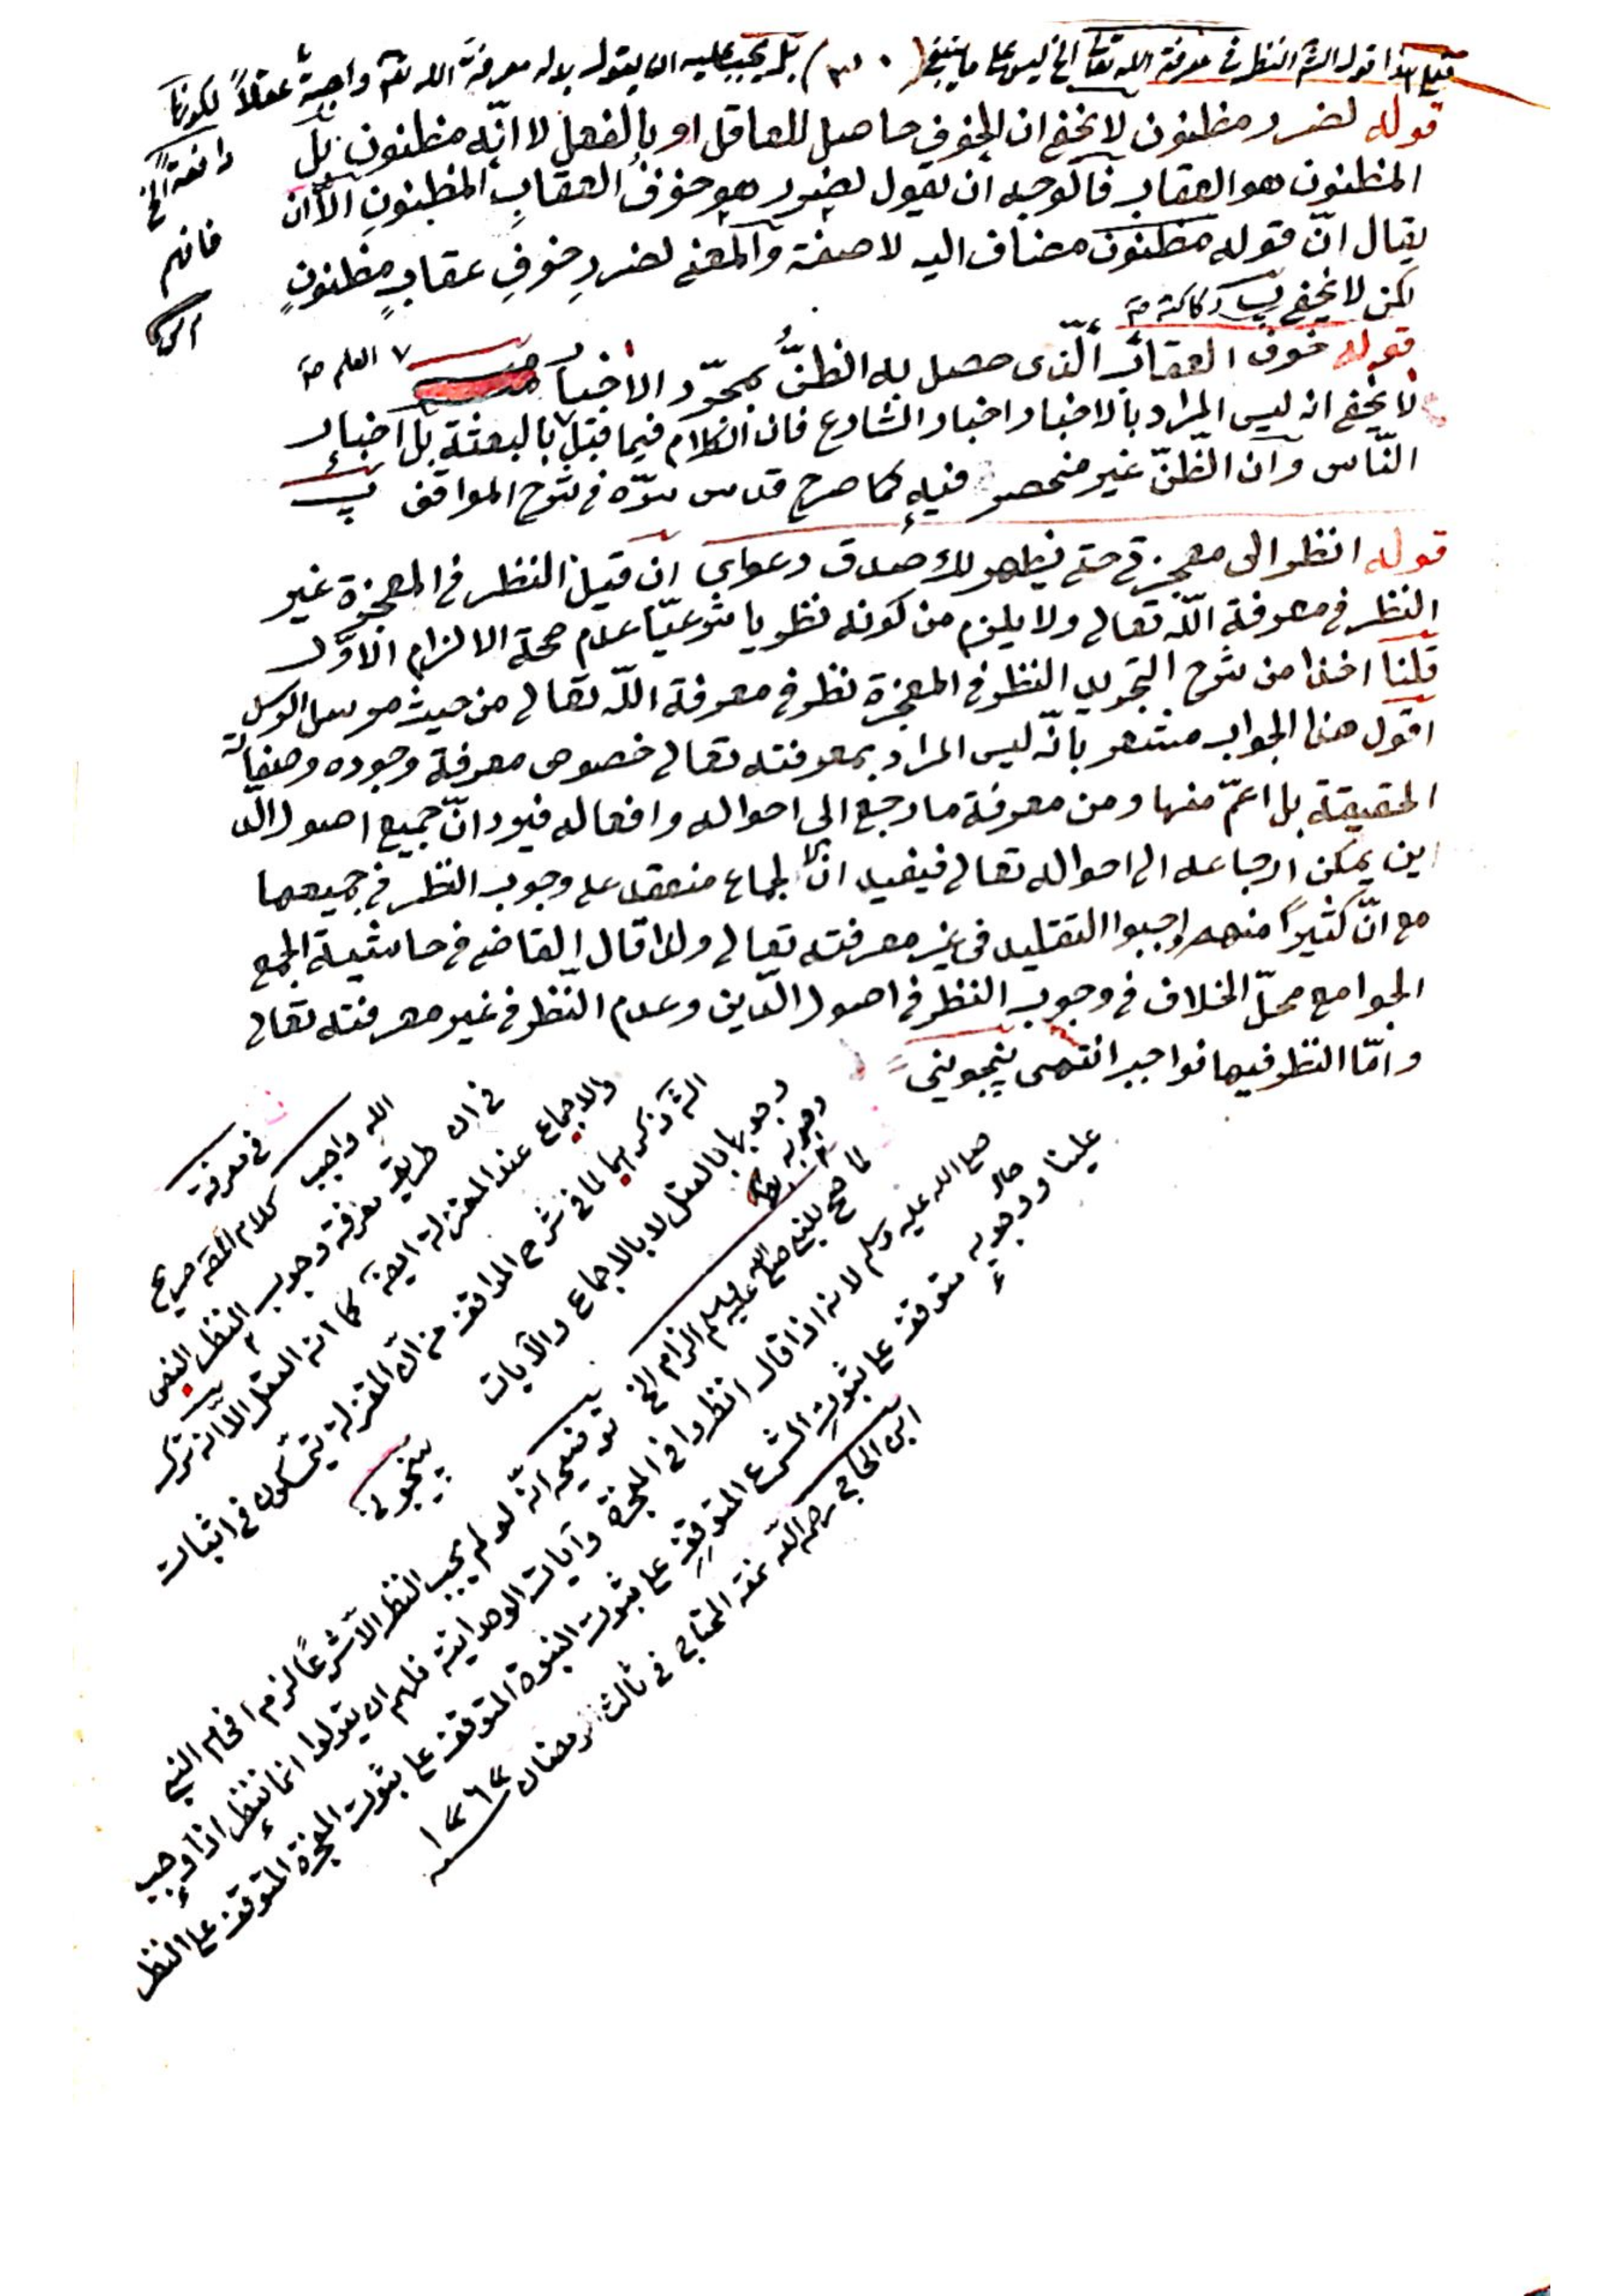 فعلى هذا قول الشر النظر في معرفة الله تعالى الخ ليس على ما ينبغي (٣٠) بل يجب عليه ان يقول بدله معرفة الله تعـ واجبة عقلاً لكونها
دافعة الخ
فافهم
قوله لضرر مظنون لا يخفى ان الخوف حاصل للعاقل او بالفعل لا انّه مظنون بل
المظنون هو العقاب فالوجه ان يقول لضرر هو خوف العقابِ المظنونِ الاّ ان
يقال انّ قوله مظنون مضاف اليه لا صفة والمعنى لضررِ خوفِ عقابٍ مظنونٍ
لكن لا يخفى ركاكته
قوله خوف العقاب الّذى حصل به الظنُّ بمجرّد الاخبار
العلم
لا يخفى انه ليس المراد بالاخبار اخبار الشارع فان الكلام فيما قبل بالبعثة بل اخبار
النّاس وان الظنّ غير منحصر فيه كما صرح قدس سرّه في شرح المواقف
قوله انظر الى معجزتى حتى يظهر لك صدق دعواى ان قيل النظر في المعجزة غير
النظر في معرفة اللّه تعالى ولا يلزم من كونه نظريا شرعيّا عدم صحة الالزام الاوّل
قلنا اخذا من شرح التجريد النظر في المعجزة نظر في معرفة اللّه تعالى من حيث مرسل الرسل
اقول هذا الجواب مشعر بانّه ليس المراد بمعرفته تعالى خصوص معرفة وجوده وصفاته
الحقيقة بل اعمّ منها ومن معرفة ما رجع الى احواله وافعاله فيرد انّ جميع اصول الد
ين يمكن ارجاعه الى احواله تعالى فيفيد انّ الاجماع منعقد على وجوب النظر في جميعها
مع انّ كثيرًا منهم اوجبوا التقليد في غير معرفته تعالى ولذا قال القاضى في حاشية الجمع
الجوامع محلّ الخلاف في وجوب النظر في اصول الدّين وعدم النظر في غير معرفته تعالى
وامّا النظر فيها فواجب انتهى پنجوينى
في معرفة
الله واجب كلام المصـ صريح
في ان طريق معرفة وجوب النظر النص
والاجماع عند المعتزلة ايضا كما انه العقل الاّ انه ترك
الشر ذكرهما لما في شرح المواقف من انّ المعتزلة يتمسّكون في اثبات
وجوبها بالعقل لا بالاجماع والآيات پنجوينى
وجوبه
لما صح للنبي صلى الله عليه وسلم الزام الخ توضيحه انّه لو لم يجب النظر الاّ شرعًا لزم افحام النبي
صلى الله عليه وسلم لانه اذا قال انظروا في المعجزة وآيات الوحدانية فلهم ان يقولوا انما ننظر اذا وجب
علينا ووجوبه متوقف على ثبوت الشرع المتوقف على ثبوت النبوة المتوقف على ثبوت المعجزة المتوقف على النظر
ابن الحاجى رحمه اللّه نمقه المحتاج في ثالث رمضان